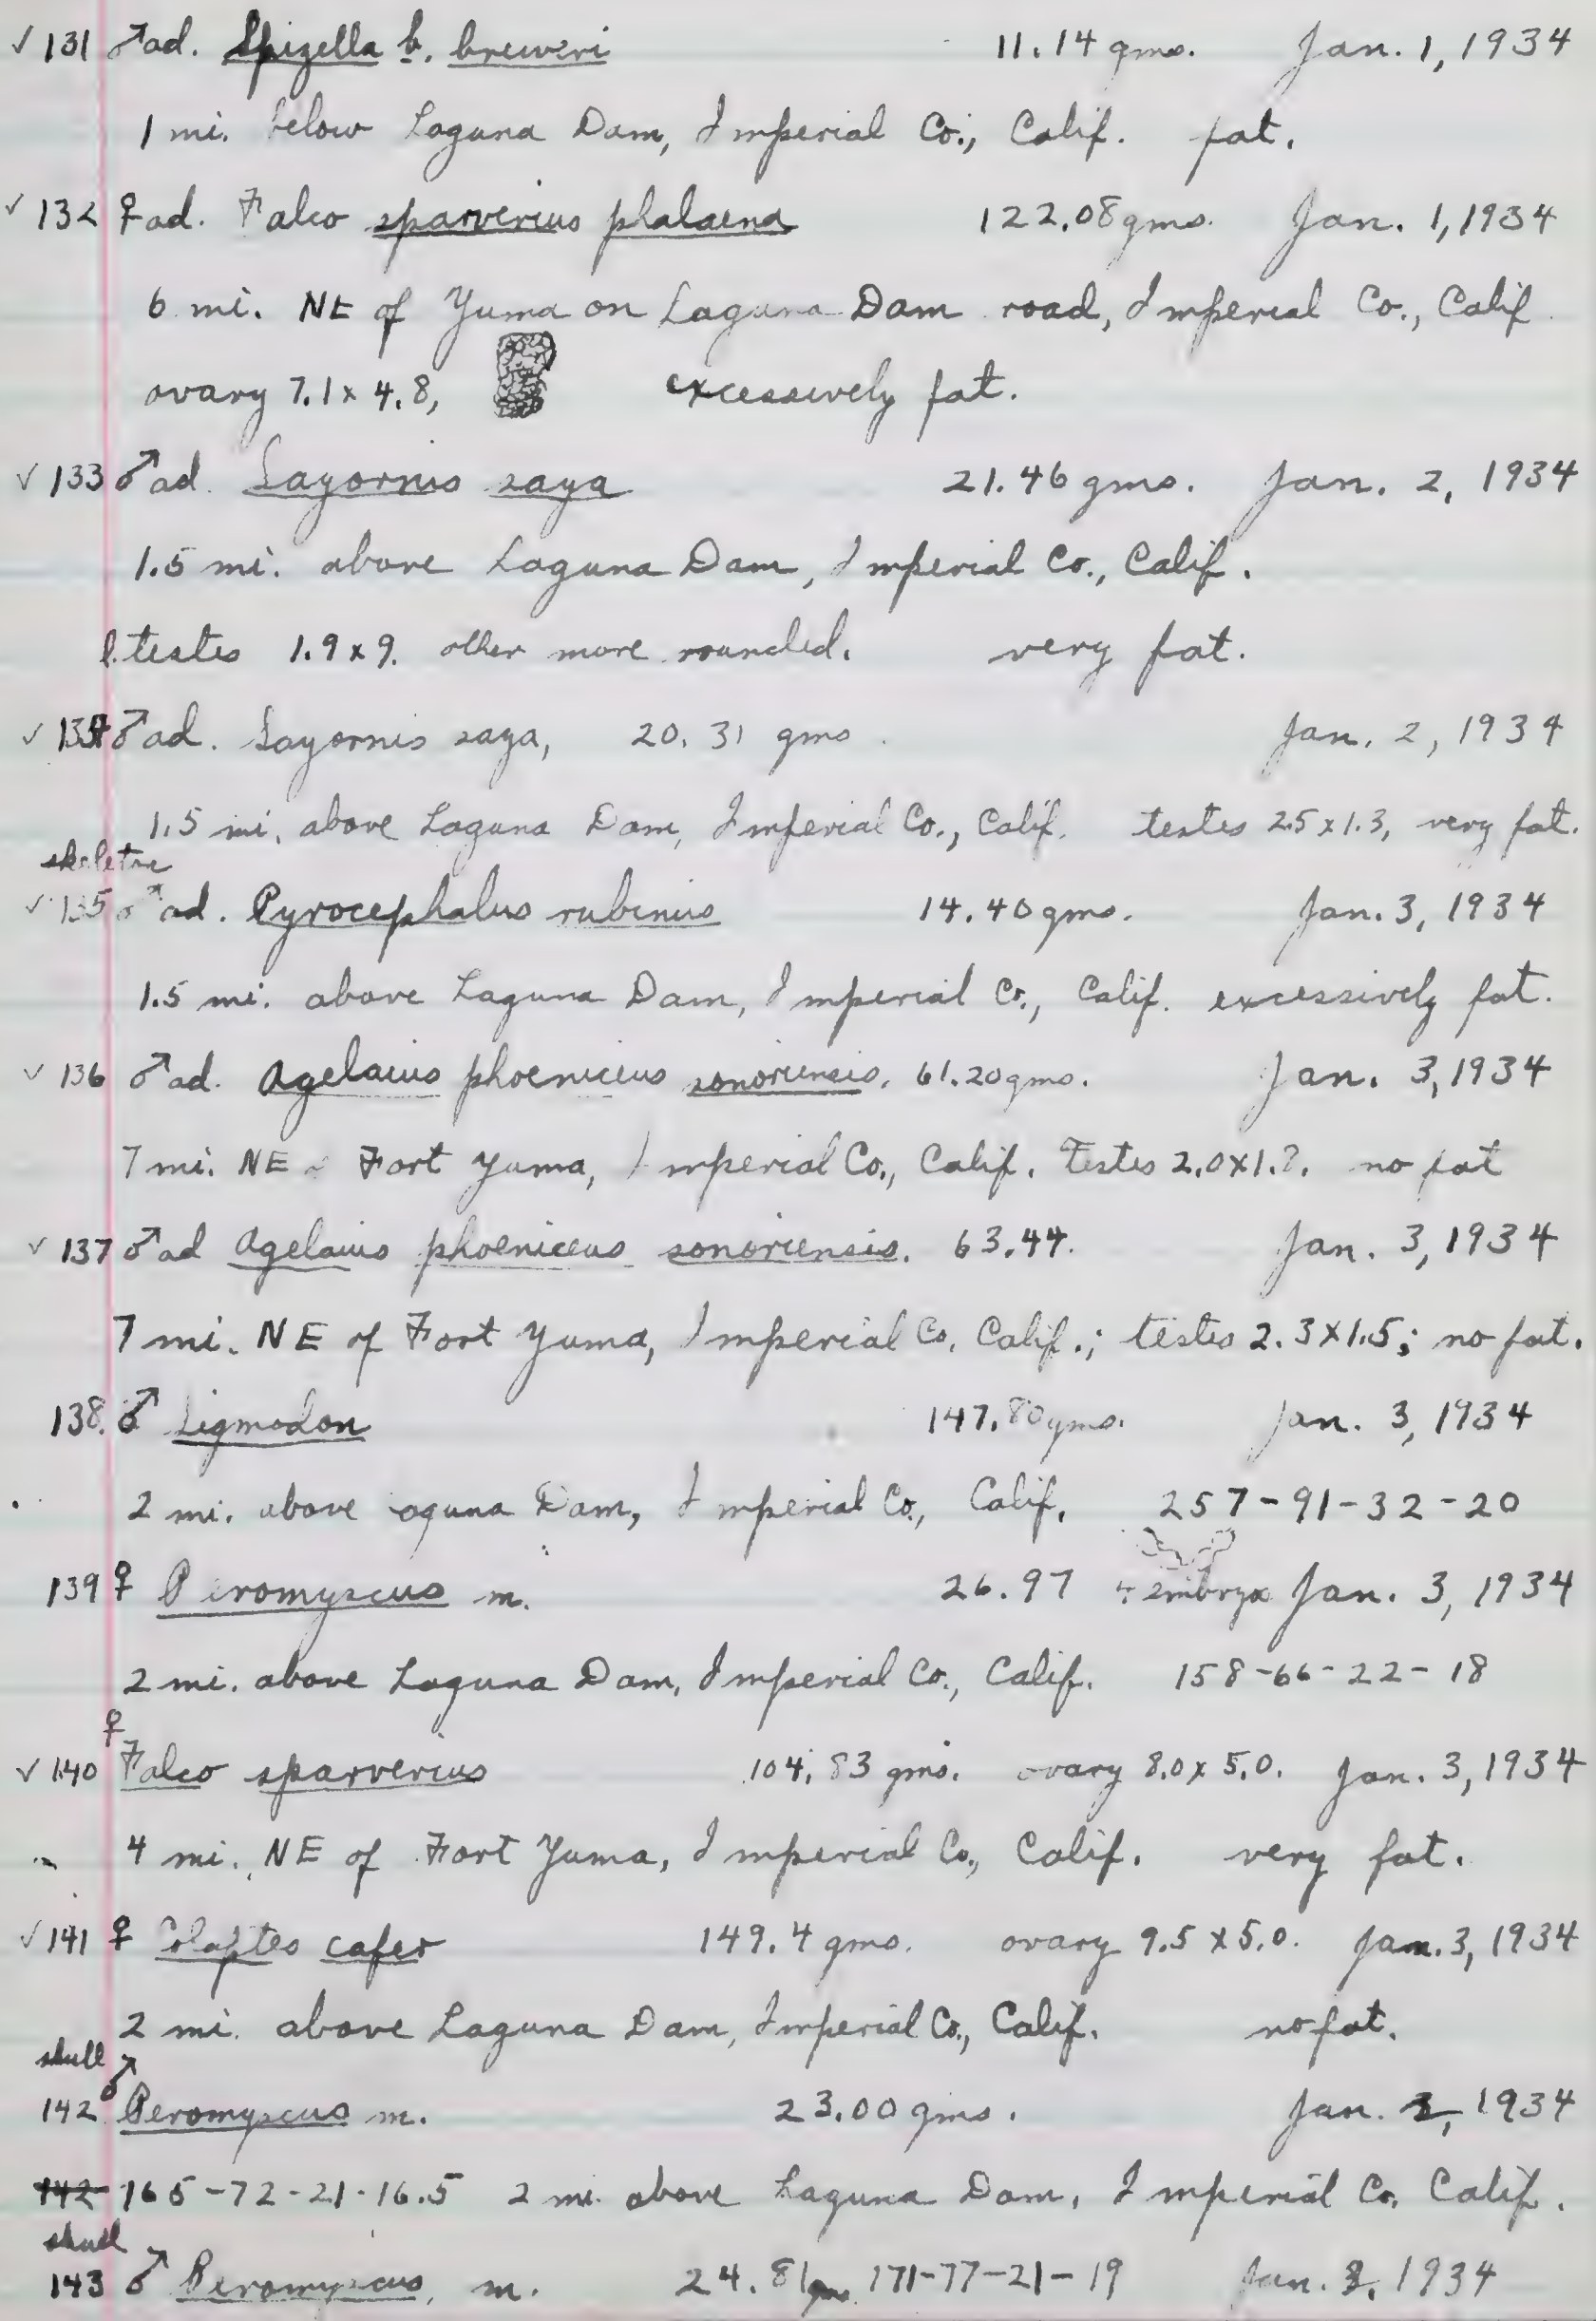 ✓ 131 ♂ad. Spizella b. breweri 11.14 gms. Jan. 1, 1934
1 mi. below Laguna Dam, Imperial Co., Calif. fat.
✓ 132 ♀ad. Falco sparverius phalaena 122.08 gms. Jan. 1, 1934
6 mi. NE of Yuma on Laguna Dam road, Imperial Co., Calif.
ovary 7.1 x 4.8, excessively fat.
✓ 133 ♂ad. Sayornis saya 21.46 gms. Jan. 2, 1934
1.5 mi. above Laguna Dam, Imperial Co., Calif.
l. testes 1.9 x 9. other more rounded. very fat.
✓ 134 ♂ad. Sayornis saya, 20.31 gms. Jan. 2, 1934
1.5 mi. above Laguna Dam, Imperial Co., Calif. testes 2.5 x 1.3, very fat.
✓ 135 ♂ad. Pyrocephalus rubinus 14.40 gms. Jan. 3, 1934
1.5 mi. above Laguna Dam, Imperial Co., Calif. excessively fat.
✓ 136 ♂ad. Agelaius phoeniceus sonoriensis. 61.20 gms. Jan. 3, 1934
7 mi. NE Fort Yuma, Imperial Co., Calif. Testes 2.0 x 1.?. no fat
✓ 137 ♂ad Agelaius phoeniceus sonoriensis. 63.44. Jan. 3, 1934
7 mi. NE of Fort Yuma, Imperial Co. Calif.; testes 2.3 x 1.5; no fat.
138. ♂ Sigmodon 147.80 gms. Jan. 3, 1934
2 mi. above Laguna Dam, Imperial Co., Calif. 257-91-32-20
139 ♀ Peromyscus m. 26.97 Jan. 3, 1934
2 mi. above Laguna Dam, Imperial Co., Calif. 158-66-22-18
♀
✓ 140 Falco sparverius 104.83 gms. ovary 8.0 x 5.0. Jan. 3, 1934
4 mi. NE of Fort Yuma, Imperial Co., Calif. very fat.
✓ 141 ♀ Colaptes cafer 149.4 gms. ovary 9.5 x 5.0. Jan. 3, 1934
2 mi. above Laguna Dam, Imperial Co., Calif. no fat.
skull
142 ♂ Peromyscus m. 23.00 gms. Jan. 3, 1934
142 165-72-21-16.5 2 mi. above Laguna Dam, Imperial Co. Calif.
skull
143 ♂ Peromyscus, m. 24.81 171-77-21-19 Jan. 3, 1934